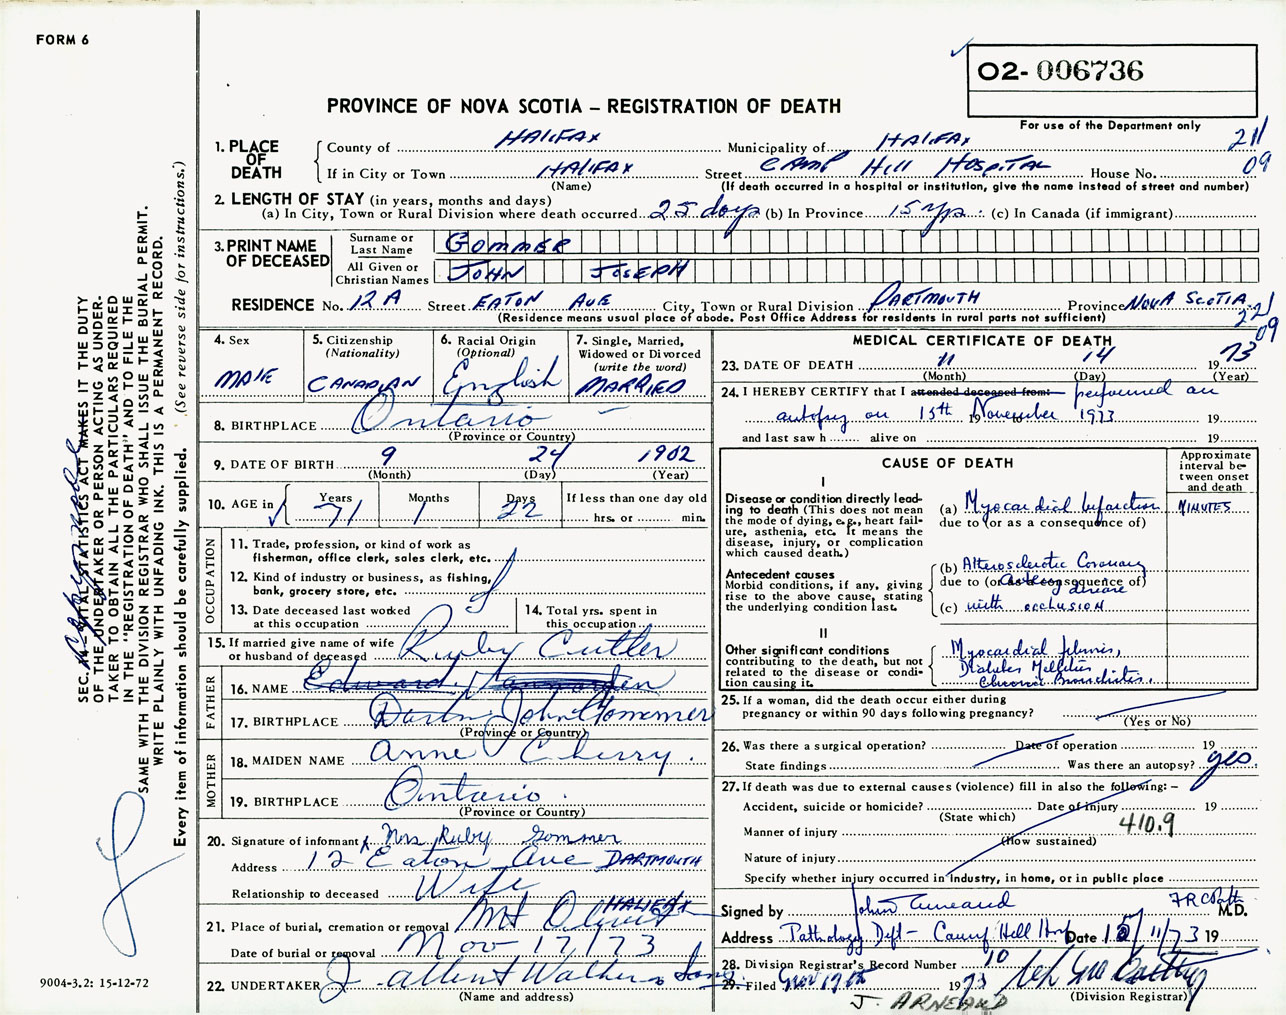 FORM 6
O2- 006736
PROVINCE OF NOVA SCOTIA – REGISTRATION OF DEATH
For use of the Department only
1. PLACE OF DEATH
County of HALIFAX Municipality of HALIFAX 211
If in City or Town HALIFAX Street CAMP HILL HOSPITAL House No. 09
(Name) (If death occurred in a hospital or institution, give the name instead of street and number)
2. LENGTH OF STAY (in years, months and days)
(a) In City, Town or Rural Division where death occurred 25 days (b) In Province 15 yrs. (c) In Canada (if immigrant)
3. PRINT NAME OF DECEASED
Surname or Last Name GOMMER
All Given or Christian Names JOHN JOSEPH
RESIDENCE No. 12A Street EATON AVE City, Town or Rural Division DARTMOUTH Province NOVA SCOTIA
(Residence means usual place of abode. Post Office Address for residents in rural parts not sufficient)
221
09
4. Sex MALE
5. Citizenship (Nationality) CANADIAN
6. Racial Origin (Optional) English
7. Single, Married, Widowed or Divorced (write the word) MARRIED
8. BIRTHPLACE Ontario
(Province or Country)
9. DATE OF BIRTH 9 24 1902
(Month) (Day) (Year)
10. AGE in Years 71 Months 1 Days 22 If less than one day old
hrs. or min.
OCCUPATION
11. Trade, profession, or kind of work as fisherman, office clerk, sales clerk, etc.
12. Kind of industry or business, as fishing, bank, grocery store, etc.
13. Date deceased last worked at this occupation
14. Total yrs. spent in this occupation
15. If married give name of wife or husband of deceased Ruby Cutler
FATHER
16. NAME Edward
John Gommer
17. BIRTHPLACE
(Province or Country)
MOTHER
18. MAIDEN NAME Anne Cherry.
19. BIRTHPLACE Ontario.
(Province or Country)
20. Signature of informant X Mrs Ruby Gommer
Address 12 Eaton Ave DARTMOUTH
Relationship to deceased Wife
21. Place of burial, cremation or removal Mt Olivet HALIFAX
Date of burial or removal Nov 17/73
22. UNDERTAKER J. Albert Walker & Sons
(Name and address)
MEDICAL CERTIFICATE OF DEATH
23. DATE OF DEATH 11 14 1973
(Month) (Day) (Year)
24. I HEREBY CERTIFY that I attended deceased from: performed an
autopsy on 15th 19 November to 1973 19
and last saw h alive on 19
CAUSE OF DEATH
Approximate interval between onset and death
I
Disease or condition directly leading to death (This does not mean the mode of dying, e.g., heart failure, asthenia, etc. It means the disease, injury, or complication which caused death.)
(a) Myocardial Infarction MINUTES
due to (or as a consequence of)
Antecedent causes
Morbid conditions, if any, giving rise to the above cause, stating the underlying condition last.
(b) Atherosclerotic Coronary
due to (or as a consequence of)
artery disease
(c) with occlusion
II
Other significant conditions contributing to the death, but not related to the disease or condition causing it.
Myocardial fibrosis,
Diabetes Mellitus
Chronic Bronchitis.
25. If a woman, did the death occur either during pregnancy or within 90 days following pregnancy?
(Yes or No)
26. Was there a surgical operation? Date of operation 19
State findings Was there an autopsy? yes
27. If death was due to external causes (violence) fill in also the following: –
Accident, suicide or homicide? Date of injury 19
(State which)
Manner of injury 410.9
(How sustained)
Nature of injury
Specify whether injury occurred in industry, in home, or in public place
Signed by John Arneaud FRCPath M.D.
Address Pathology Dept – Camp Hill Hosp Date 15/11/73 19
28. Division Registrar's Record Number 10
29. Filed Nov 19th 1973
(Division Registrar)
J. ARNEAUD
SEC. VITAL STATISTICS ACT MAKES IT THE DUTY
OF THE UNDERTAKER OR PERSON ACTING AS UNDERTAKER TO OBTAIN ALL THE PARTICULARS REQUIRED
IN THE "REGISTRATION OF DEATH" AND TO FILE THE
SAME WITH THE DIVISION REGISTRAR WHO SHALL ISSUE THE BURIAL PERMIT.
WRITE PLAINLY WITH UNFADING INK. THIS IS A PERMANENT RECORD.
Every item of information should be carefully supplied. (See reverse side for instructions.)
9004-3.2: 15-12-72